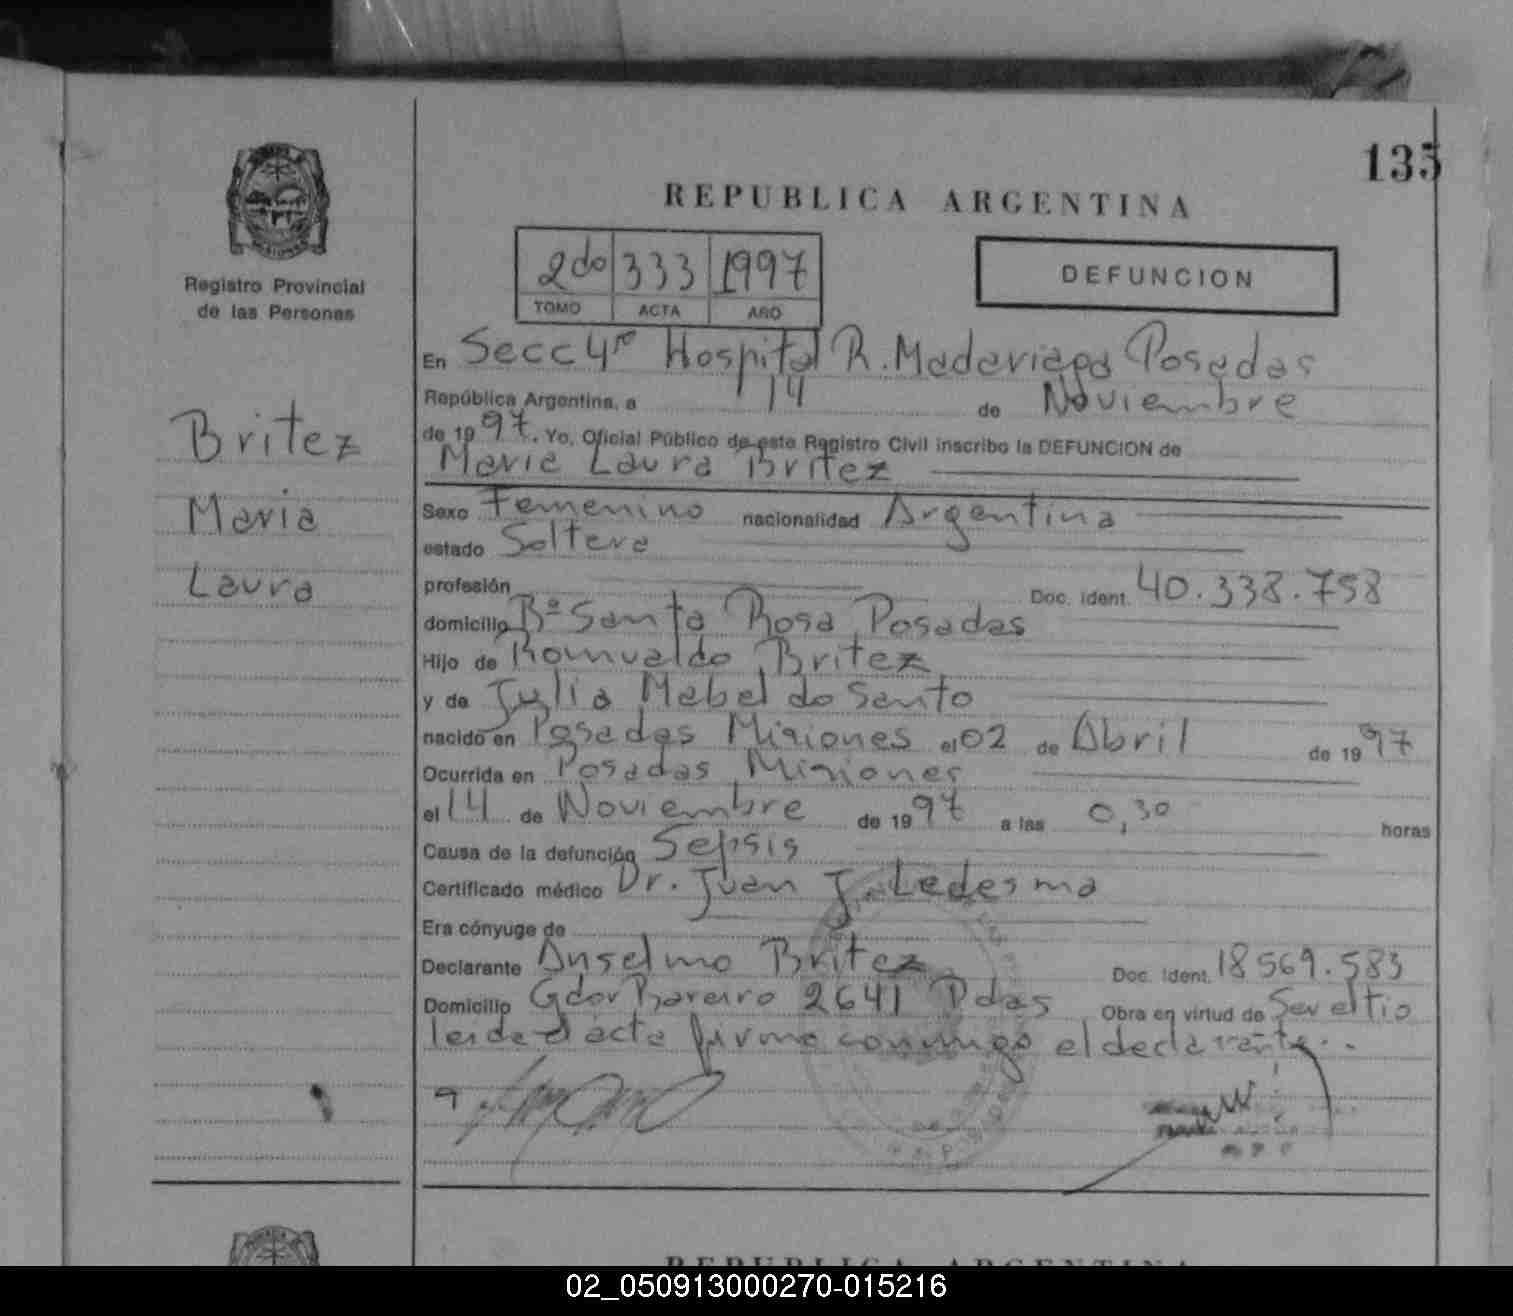 135
REPUBLICA ARGENTINA
Registro Provincial
de las Personas
2do 333 1997
TOMO ACTA AÑO
DEFUNCION
Britez
Maria
Laura
En Secc 4ta Hospital R. Madariaga Posadas
República Argentina, a 14 de Noviembre
de 1997. Yo, Oficial Público de este Registro Civil inscribo la DEFUNCION de
Maria Laura Britez
Sexo Femenino nacionalidad Argentina
estado Soltera
profesión Doc. ident. 40.338.758
domicilio Bº Santa Rosa Posadas
Hijo de Romualdo Britez
y de Julia Mabel do Santo
nacido en Posadas Misiones el 02 de Abril de 1997
Ocurrida en Posadas Misiones
el 14 de Noviembre de 1997 a las 0,30 horas
Causa de la defunción Sepsis
Certificado médico Dr. Juan J. Ledesma
Era cónyuge de
Declarante Anselmo Britez Doc. Ident. 18569.583
Domicilio Gdor Bareiro 2641 Pdas Obra en virtud de Ser el tio
leida el acta firma conmigo el declarante..
REPUBLICA ARGENTINA
02_050913000270-015216